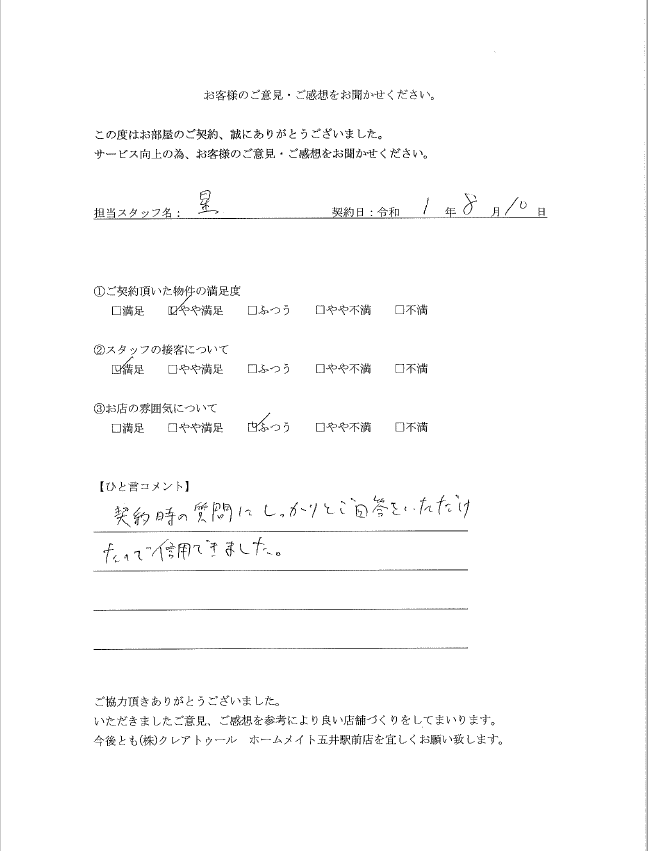 お客様のご意見・ご感想をお聞かせください。
この度はお部屋のご契約、誠にありがとうございました。
サービス向上の為、お客様のご意見・ご感想をお聞かせください。
担当スタッフ名: 星 契約日:令和 1 年 8 月 10 日
①ご契約頂いた物件の満足度
☐満足 ☑やや満足 ☐ふつう ☐やや不満 ☐不満
②スタッフの接客について
☑満足 ☐やや満足 ☐ふつう ☐やや不満 ☐不満
③お店の雰囲気について
☐満足 ☐やや満足 ☑ふつう ☐やや不満 ☐不満
【ひと言コメント】
契約時の質問にしっかりとご回答をいただけ
たので信用できました。
ご協力頂きありがとうございました。
いただきましたご意見、ご感想を参考により良い店舗づくりをしてまいります。
今後とも(株)クレアトゥール ホームメイト五井駅前店を宜しくお願い致します。